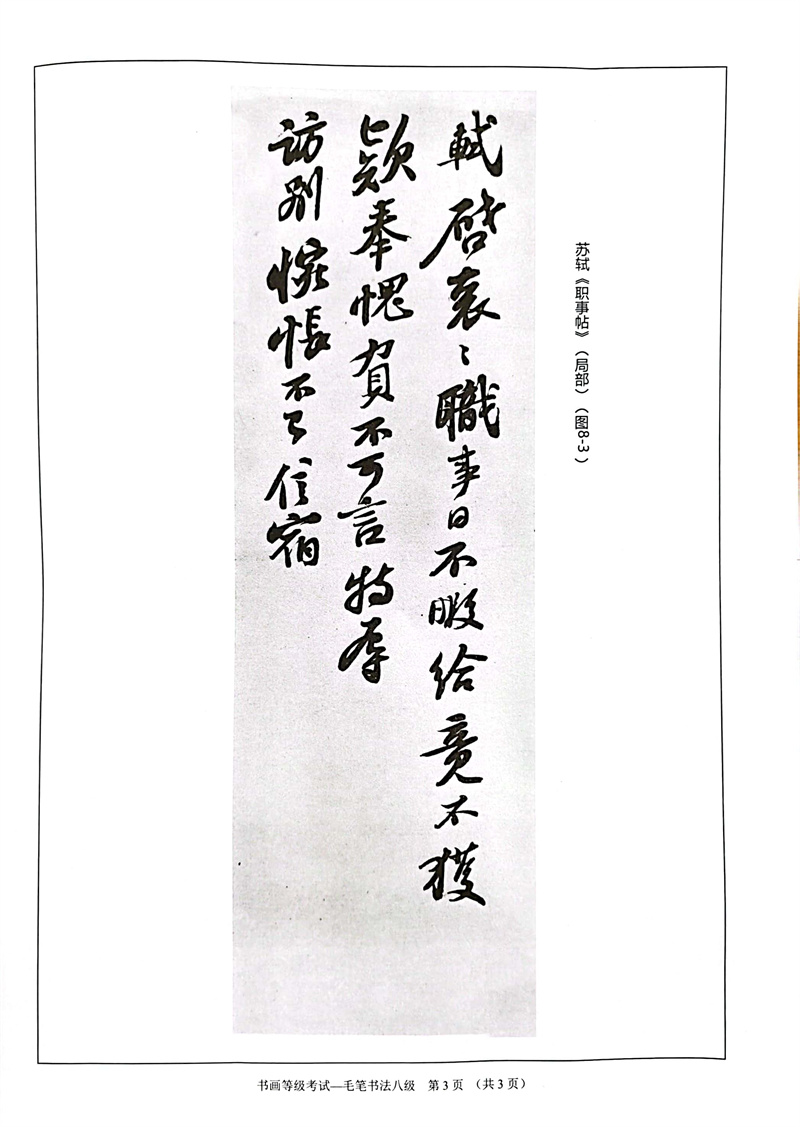 苏轼《职事帖》（局部）（图8-3）
軾啓衰〻職事日不暇給竟不獲
款奉愧負不可言特辱
訪別惋悵不已信宿
书画等级考试—毛笔书法八级 第3页 （共3页）